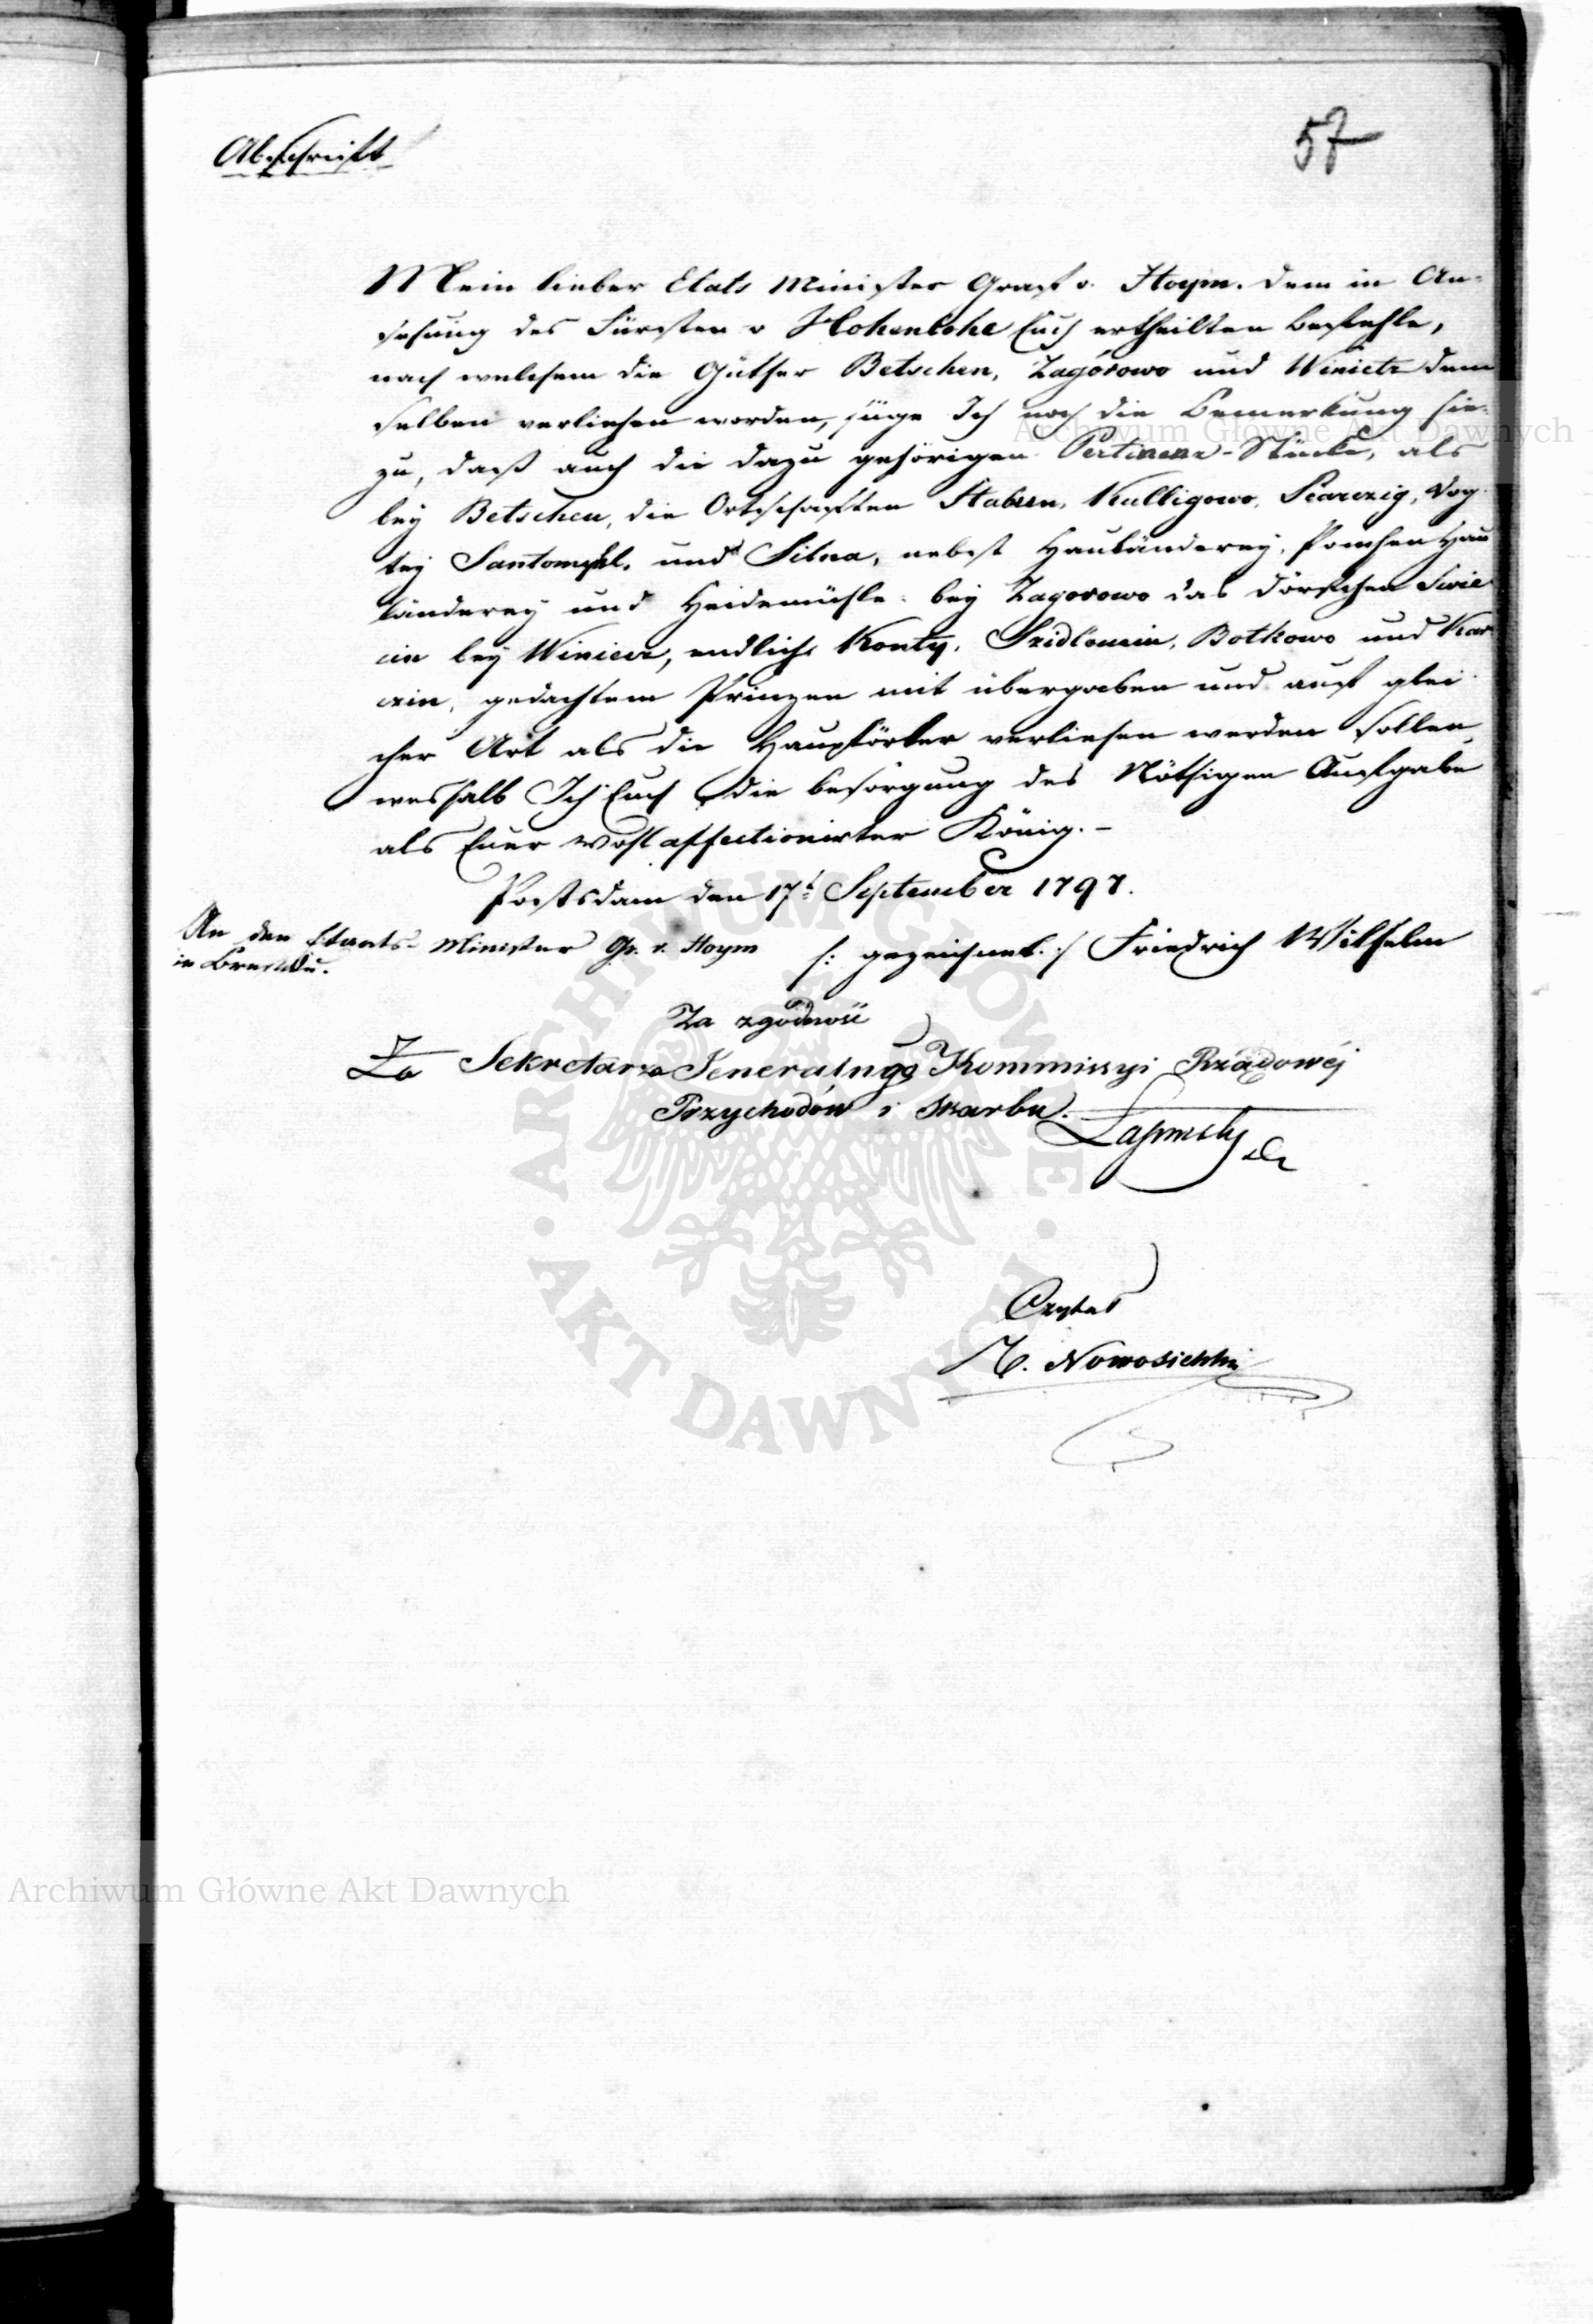 Abschrift
57
Mein lieber Etats Minister Graf v. Hoym. Dem in An-
sehung des Fürsten v Hohenlohe Euch ertheilten Befehle,
nach welchem die Güther Betschen, Zagórowo und Winietz dem
selben verliehen worden, füge Ich noch die Bemerkung hie-
zu, daß auch die dazu gehörigen Pertinenz-Stücke, als
bey Betschen, die Ortschaften Stabren, Kulligowo, Scharzig, Vog-
tey Santomysl, und Silna, nebst Hauländerey, Hau
länderey und Heidemühle: bey Zagorowo das Dörfchen Swie
cin bey Winiecz, endlich Konty, Szidlowin, Botkowo und Kar
czin, gedachtem Prinzen mit übergeben und auf glei-
cher Art als die Hauptörter verliehen werden sollen,
weshalb Ich Euch die Besorgung des Nöthigen Aufgabe
als Euer wohl affectionirter König. –
Potsdam den 17t September 1797.
An den Etaats-Minister Gr. v. Hoym
in Breslau.
/: gezeichnet :/ Friedrich Wilhelm
Za zgodność
Za Sekretarza Jeneralnego Kommissyi Rządowéj
Przychodów i Skarbu.
Czytał
Nowosielski
Archiwum Główne Akt Dawnych
ARCHIWUM GŁÓWNE · AKT DAWNYCH ·
Archiwum Główne Akt Dawnych